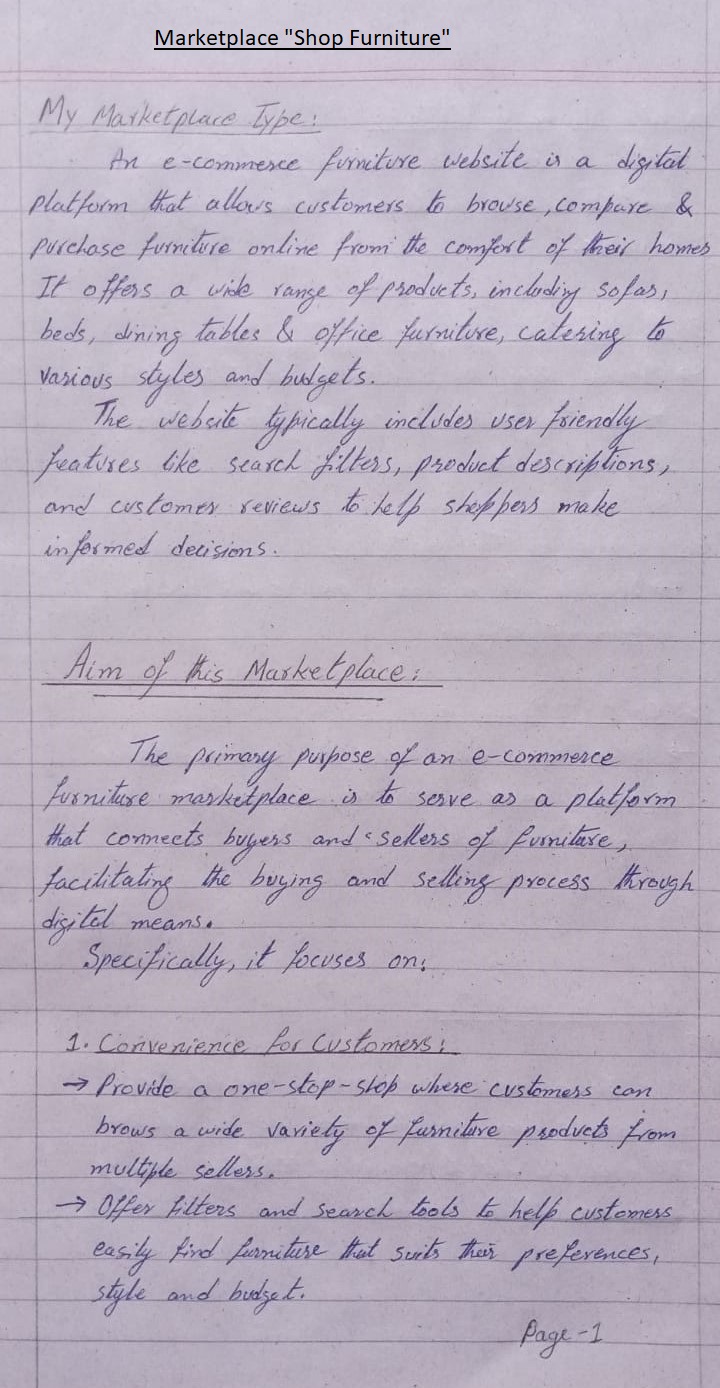 Marketplace "Shop Furniture"
My Marketplace Type:
An e-commerce furniture website is a digital
platform that allows customers to browse, compare &
purchase furniture online from the comfort of their homes
It offers a wide range of products, including sofas,
beds, dining tables & office furniture, catering to
various styles and budgets.
The website typically includes user friendly
features like search filters, product descriptions,
and customer reviews to help shoppers make
informed decisions.
Aim of this Marketplace:
The primary purpose of an e-commerce
furniture marketplace is to serve as a platform
that connects buyers and sellers of furniture,
facilitating the buying and selling process through
digital means.
Specifically, it focuses on:
1. Convenience for Customers:
→ Provide a one-stop-shop where customers can
brows a wide variety of furniture products from
multiple sellers.
→ Offer filters and search tools to help customers
easily find furniture that suits their preferences,
style and budget.
Page-1